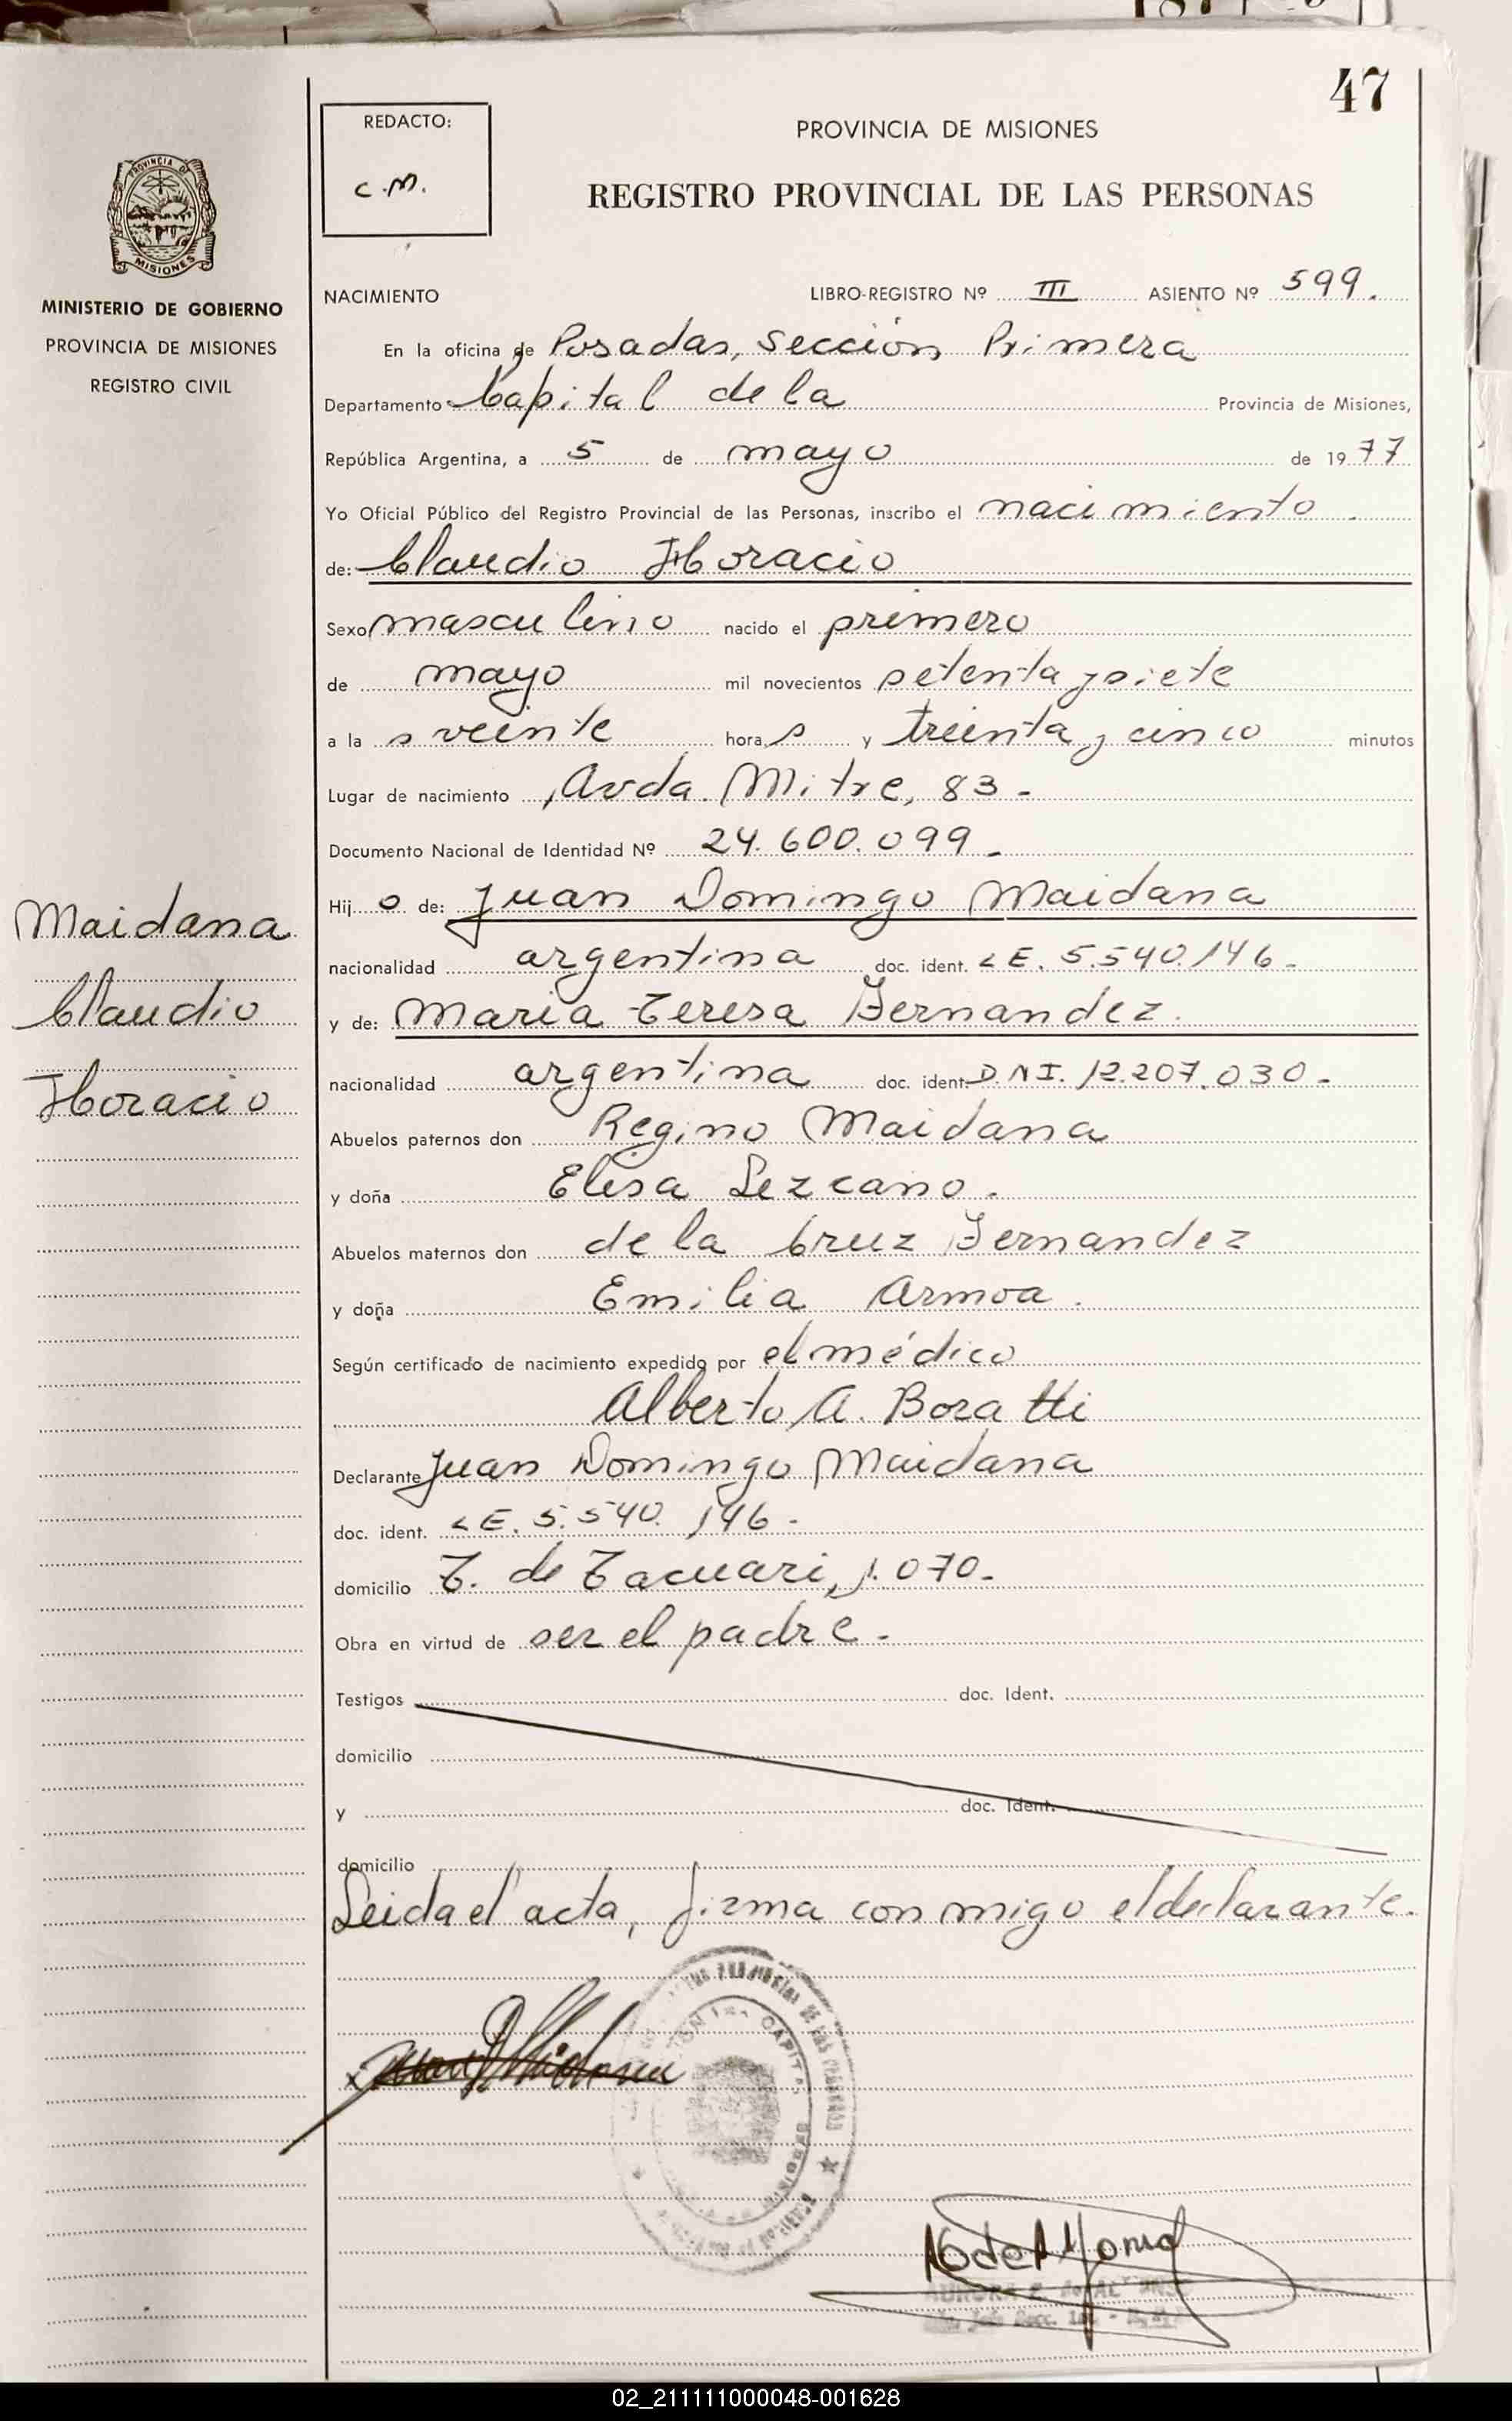 47
REDACTO:
C.M.
PROVINCIA DE MISIONES
REGISTRO PROVINCIAL DE LAS PERSONAS
PROVINCIA DE
MISIONES
MINISTERIO DE GOBIERNO
PROVINCIA DE MISIONES
REGISTRO CIVIL
NACIMIENTO LIBRO-REGISTRO Nº III ASIENTO Nº 599.
En la oficina de Posadas, sección Primera
Departamento Capital de la Provincia de Misiones,
República Argentina, a 5 de mayo de 1977
Yo Oficial Público del Registro Provincial de las Personas, inscribo el nacimiento.
de: Claudio Horacio
Sexo masculino nacido el primero
de mayo mil novecientos setenta y siete
a la s veinte hora s y treinta y cinco minutos
Lugar de nacimiento Avda. Mitre, 83-
Documento Nacional de Identidad Nº 24.600.099-
Hij o de: Juan Domingo Maidana
nacionalidad argentina doc. ident. LE. 5.540.146-
y de: Maria Teresa Fernandez.
nacionalidad argentina doc. ident. D.N.I. 12.207.030-
Abuelos paternos don Regino Maidana
y doña Elisa Lezcano.
Abuelos maternos don de la Cruz Fernandez
y doña Emilia Armoa.
Según certificado de nacimiento expedido por el médico
Alberto A. Boratti
Declarante Juan Domingo Maidana
doc. ident. LE. 5.540.146-
domicilio T. de Tacuari, 1.070-
Obra en virtud de ser el padre-
Testigos doc. Ident.
domicilio
y doc. Ident.
domicilio
Leida el acta, firma conmigo el declarante.
Maidana
Claudio
Horacio
02_211111000048-001628